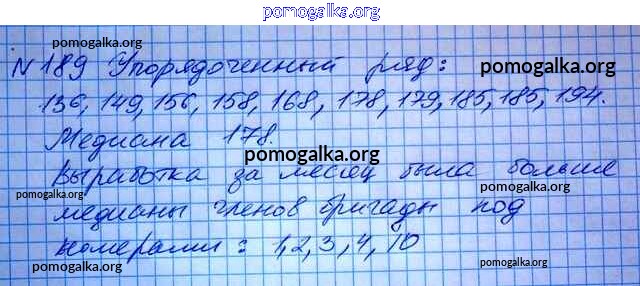 pomogalka.org
N 189 Упорядоченный ряд:
pomogalka.org
pomogalka.org
136, 149, 156, 158, 168, 178, 179, 185, 185, 194.
Медиана 178.
pomogalka.org
Выработка за месяц была больше
pomogalka.org
pomogalka.org
медианы членов бригады под
pomogalka.org
номерами: 1, 2, 3, 4, 10
pomogalka.org
pomogalka.org